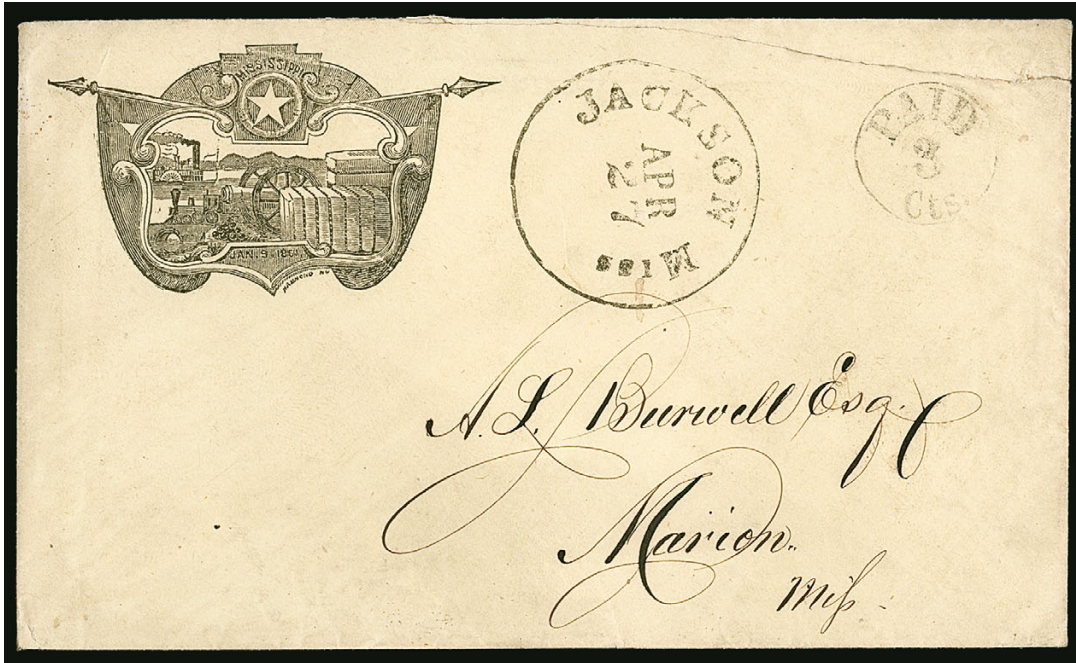 MISSISSIPPI
JAN. 9. 1861
JACKSON
APR
27
Miss
PAID
3
Cts
A. L. Burwell Esq.
Marion.
Miſs.